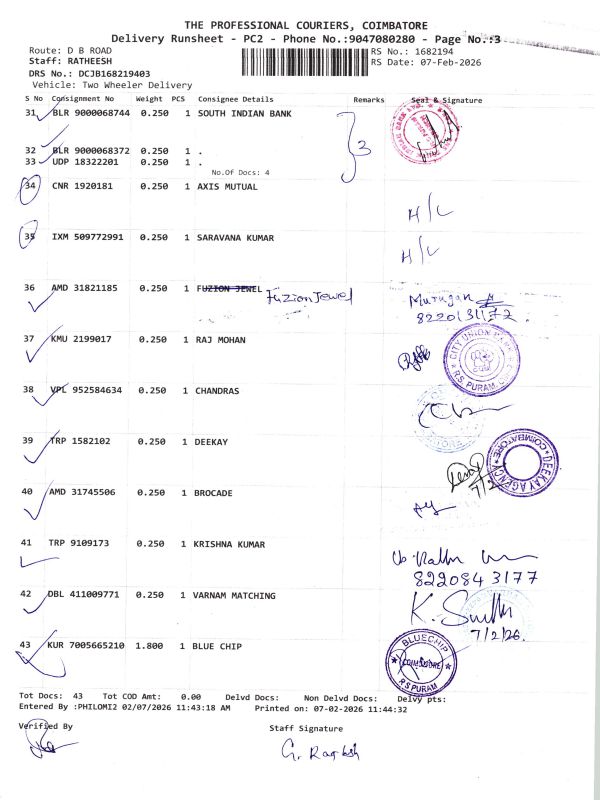 THE PROFESSIONAL COURIERS, COIMBATORE
Delivery Runsheet - PC2 - Phone No.:9047080280 - Page No.:3
Route: D B ROAD
RS No.: 1682194
Staff: RATHEESH
RS Date: 07-Feb-2026
DRS No.: DCJB168219403
Vehicle: Two Wheeler Delivery
S No Consignment No Weight PCS Consignee Details Remarks Seal & Signature
31 BLR 9000068744 0.250 1 SOUTH INDIAN BANK
3
32 BLR 9000068372 0.250 1 .
33 UDP 18322201 0.250 1 .
No.Of Docs: 4
34 CNR 1920181 0.250 1 AXIS MUTUAL
H/L
35 IXM 509772991 0.250 1 SARAVANA KUMAR
H/L
36 AMD 31821185 0.250 1 FUZION JEWEL Fuzion Jewel Murugan
37 KMU 2199017 0.250 1 RAJ MOHAN
CITY UNION BANK
R.S PURAM
38 VPL 952584634 0.250 1 CHANDRAS
39 TRP 1582102 0.250 1 DEEKAY
DEEKAY AGENCY
COIMBATORE
7/2
40 AMD 31745506 0.250 1 BROCADE
41 TRP 9109173 0.250 1 KRISHNA KUMAR
8220843177
42 DBL 411009771 0.250 1 VARNAM MATCHING
7/2/26.
43 KUR 7005665210 1.800 1 BLUE CHIP
BLUECHIP
COIMBATORE
R S PURAM
Tot Docs: 43 Tot COD Amt: 0.00 Delvd Docs: Non Delvd Docs: Delvy pts:
Entered By :PHILOMI2 02/07/2026 11:43:18 AM Printed on: 07-02-2026 11:44:32
Verified By Staff Signature